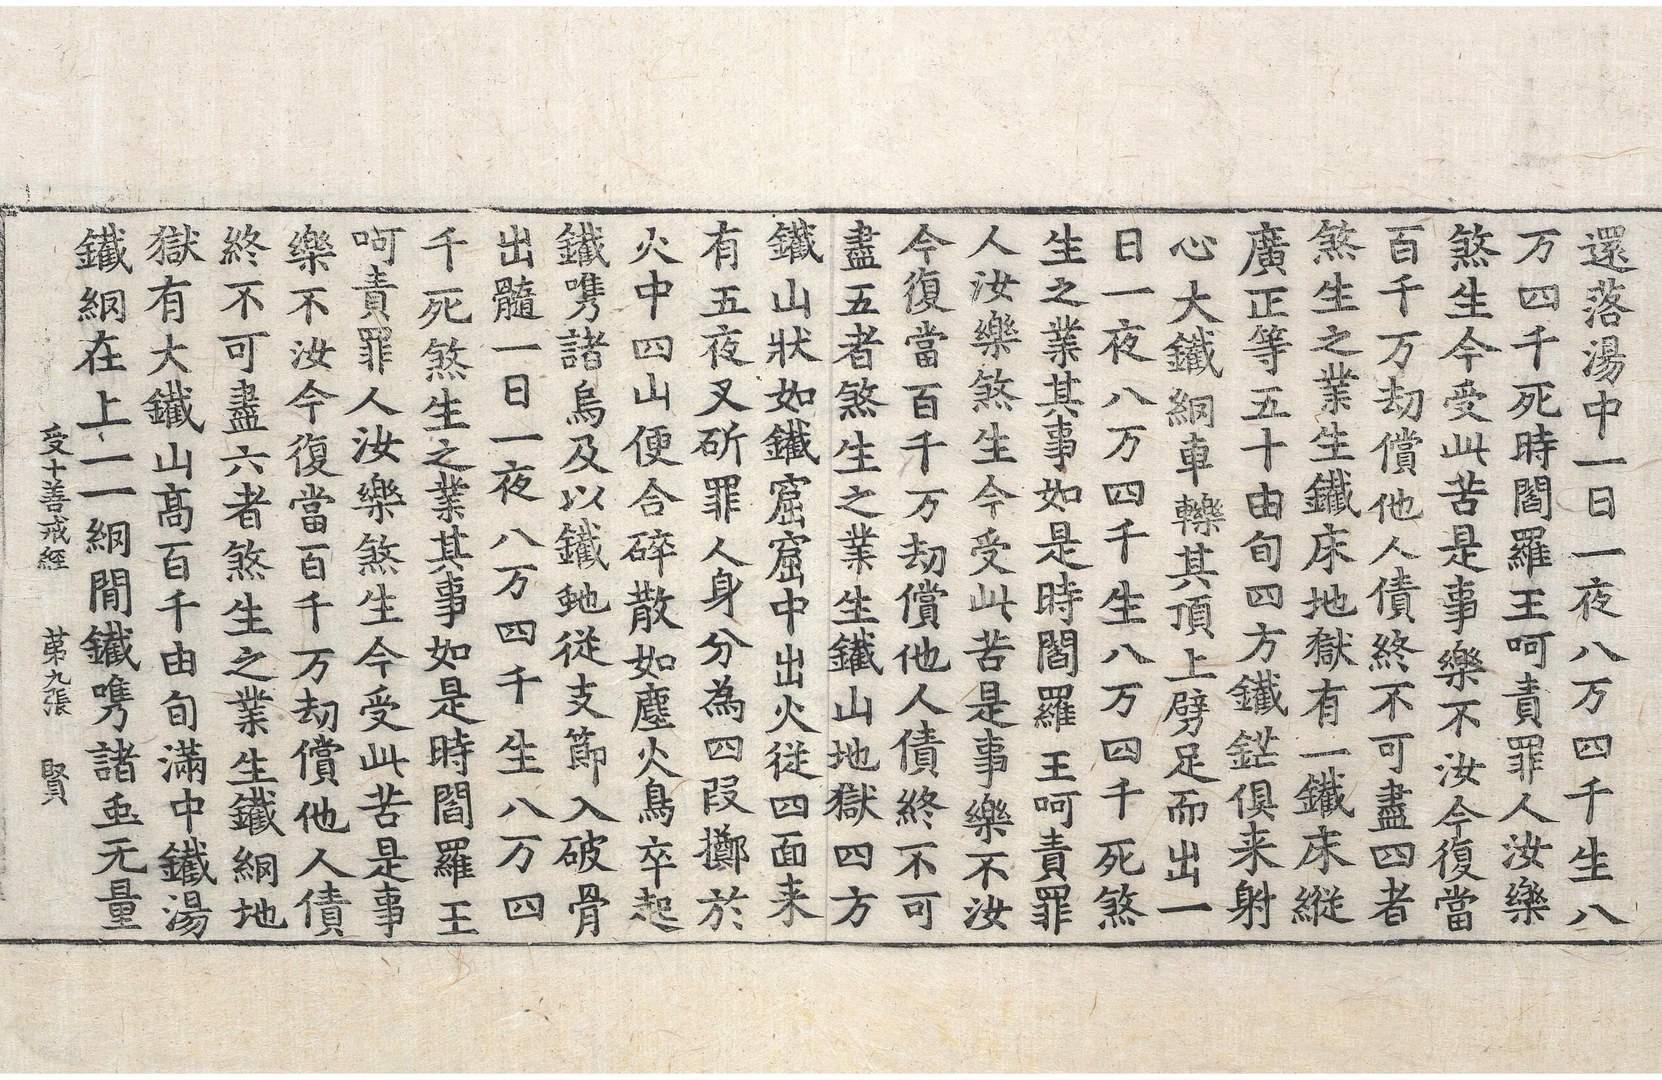 還落湯中一日一夜八万四千生八
万四千死時閻羅王呵責罪人汝樂
煞生今受此苦是事樂不汝今復當
百千万劫償他人債終不可盡四者
煞生之業生鐵床地獄有一鐵床縱
廣正等五十由旬四方鐵鋩俱来射
心大鐵網車轢其頂上劈足而出一
日一夜八万四千生八万四千死煞
生之業其事如是時閻羅王呵責罪
人汝樂煞生今受此苦是事樂不汝
今復當百千万劫償他人債終不可
盡五者煞生之業生鐵山地獄四方
鐵山狀如鐵窟窟中出火從四面来
有五夜叉斫罪人身分為四段擲於
火中四山便合碎散如塵火鳥卒起
鐵㭰諸鳥及以鐵虵從支節入破骨
出髓一日一夜八万四千生八万四
千死煞生之業其事如是時閻羅王
呵責罪人汝樂煞生今受此苦是事
樂不汝今復當百千万劫償他人債
終不可盡六者煞生之業生鐵網地
獄有大鐵山高百千由旬滿中鐵湯
鐵網在上一一網間鐵㭰諸䖝无量
受十善戒經 苐九張 賢